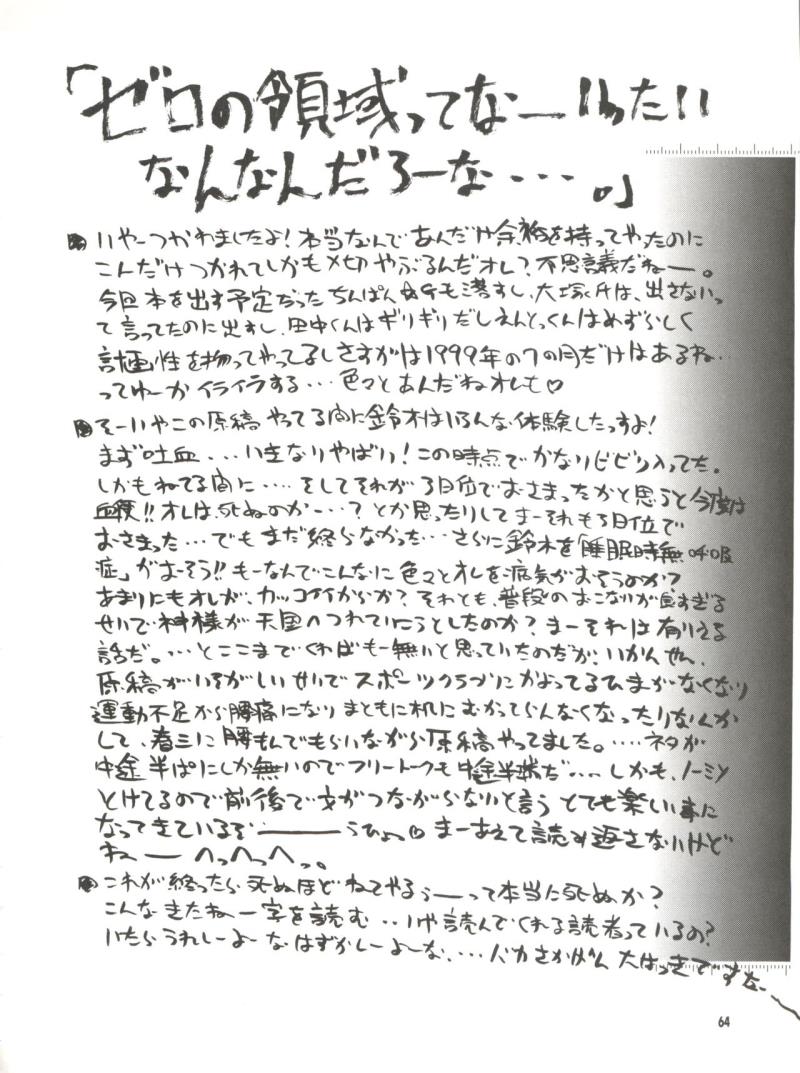 「ゼロの領域ってなーいったい
なんなんだろーな・・・。」
いやーつかれましたよ!本当なんであんだけ余裕を持ってやったのに
こんだけつかれてしかも〆切やぶるんだオレ?不思議だねー。
今回本を出す予定だったちんぱん も落すし、大塚氏は、出さないっ
て言ってたのに出すし、田中くんはギリギリだしえんとっくんはめずらしく
計画性を持ってやってるしさすがは1999年の7の月だけはあるね・・
ってゆーかイライラする・・・色々とあんだねオレも♡
そーいやこの原稿やってる間に鈴木はいろんな体験したっすよ!
まず吐血・・・いきなりやばい!この時点でかなりビビリ入ってた。
しかもねてる間に・・・・そしてそれが3日位でおさまったかと思うと今度は
血便!!オレは、死ぬのか・・・?とか思ったりしてまーそれも3日位で
おさまった・・・でもまだ終らなかった・・・さらに鈴木を「睡眠時無呼吸
症」がおーそう!!もーなんでこんなに色々とオレを病気がおそうのか?
あまりにもオレが、カッコイイからか?それとも、普段のおこないが良すぎる
せいで神様が天国へつれていこうとしたのか?まーそれは有りえる
話だ。・・・とここまでくればもー無いと思っていたのだが、いかんせん、
原稿がいそがしいせいでスポーツクラブにかよってるひまがなくなり
運動不足から腰痛になりまともに机にむかってらんなくなったりなんか
して、春三に腰もんでもらいながら原稿やってました。・・・・ネタが
中途半ぱにしか無いのでフリートークも中途半ぱだ・・・しかも、ノーミソ
とけてるので前後で文がつながらないと言うとても楽しい事に
なってきているぞーーーうひょっ♡まーあえて読み返さないけど
ねーーへっへっへっ。
これが終ったら死ぬほどねてやるぅーーって本当に死ぬか?
こんなきたねー字を読む・・いや読んでくれる読者っているの?
いたらうれしーよーなはずかしーよーな、・・・バカさかげん大はっきですなー
64